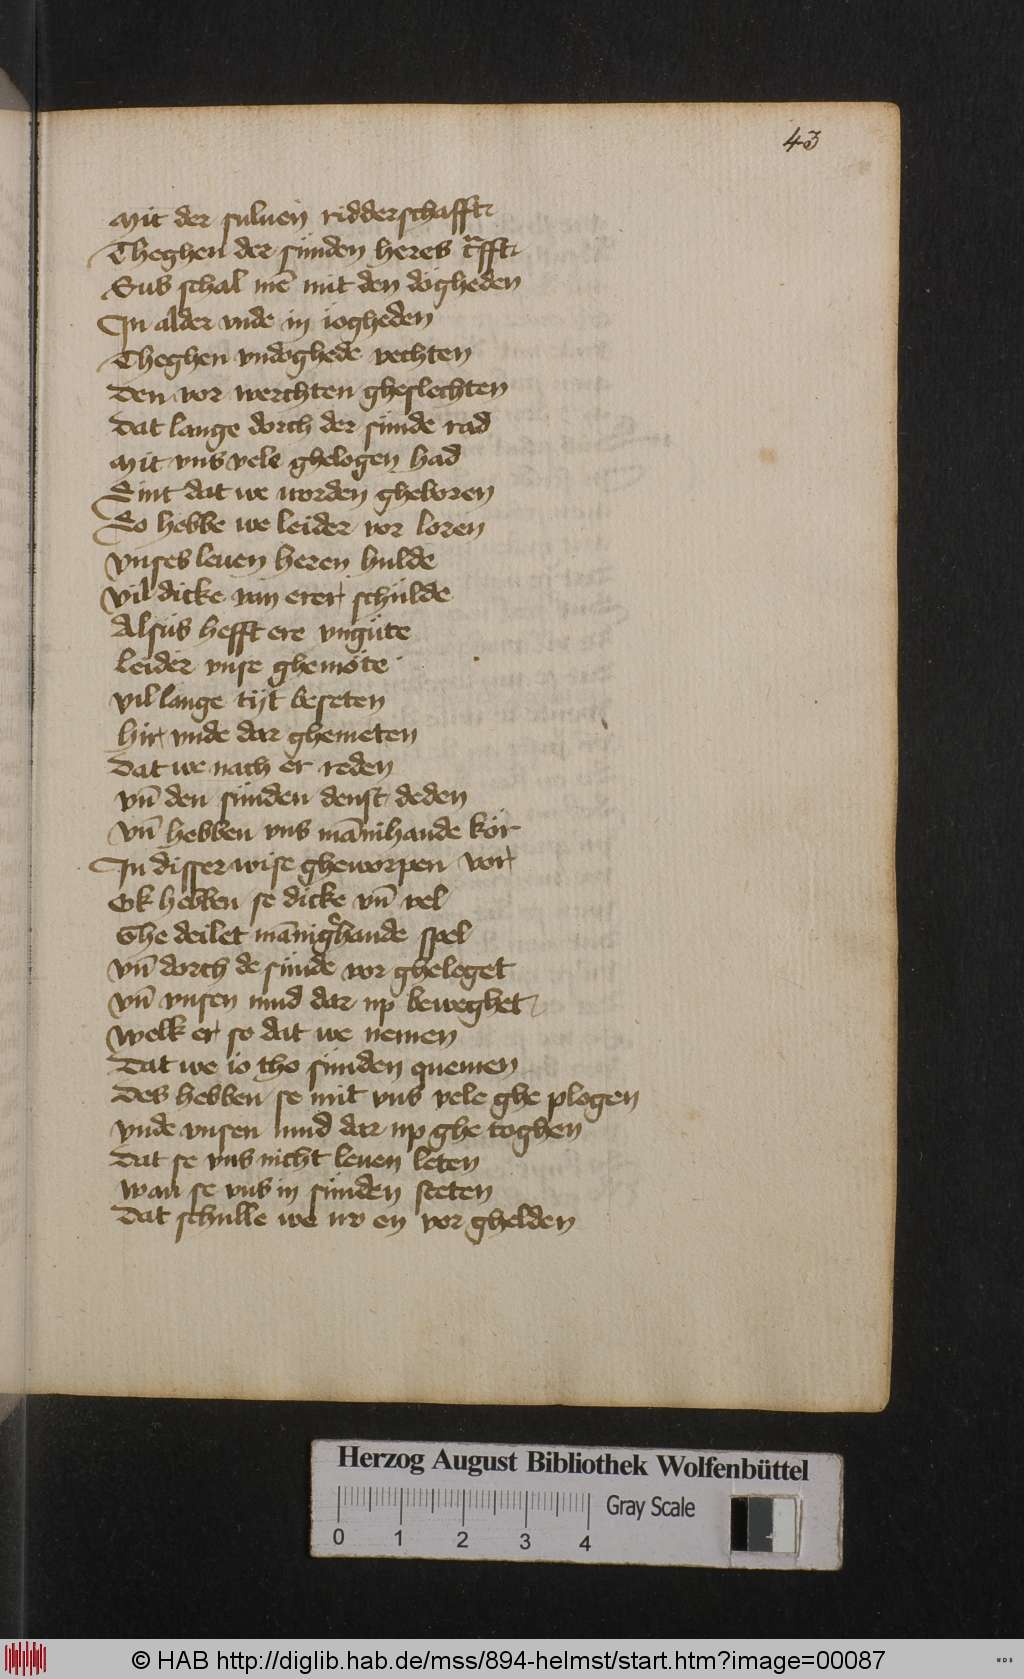 43
Mit der suluen ridderschafft
Theghen der sunden heres crafft
Sus schal mē mit den dogheden
In alder vnde in iogheden
Theghen vndoghede vechten
Den vor worchten gheslechten
Dat lange dorch der sunde rad
Mit vns vele ghelogen had
Sint dat we worden gheboren
So hebbe we leider vor loren
Vnses leuen heren hulde
Vil dicke van erer schulde
Alsus hefft ere vngute
Leider vnse ghemote
Vil lange tijt beseten
Hir vnde dar ghemeten
Dat we nach er reden
Vn̄ den sunden denst deden
Vn̄ hebben vns mānihande kor
In disser wise gheworpen vor
Ok hebben se dicke vn̄ vel
Ghe deilet mānigerhande spel
Vn̄ dorch de sunde vor gheleget
Vn̄ vnsen mud dar up beweghet
Welk er so dat we nemen
Dat we io tho sunden quemen
Des hebben se mit vns vele ghe plogen
Vnde vnsen mud dar up ghe toghen
Dat se vns nicht leuen leten
Wan se vns in sunden steten
Dat schulle we nv en vor ghelden
Herzog August Bibliothek Wolfenbüttel
Gray Scale
0 1 2 3 4
© HAB http://diglib.hab.de/mss/894-helmst/start.htm?image=00087